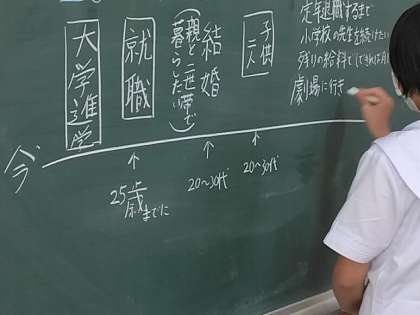 大学進学
就職
結婚
(親と二世帯で
暮らしたい)
子供
二人
定年退職するまで
小学校の先生を続けたい
残りの給料で(できれば月
劇場に行き
今
25歳までに
20〜30代
20〜30代